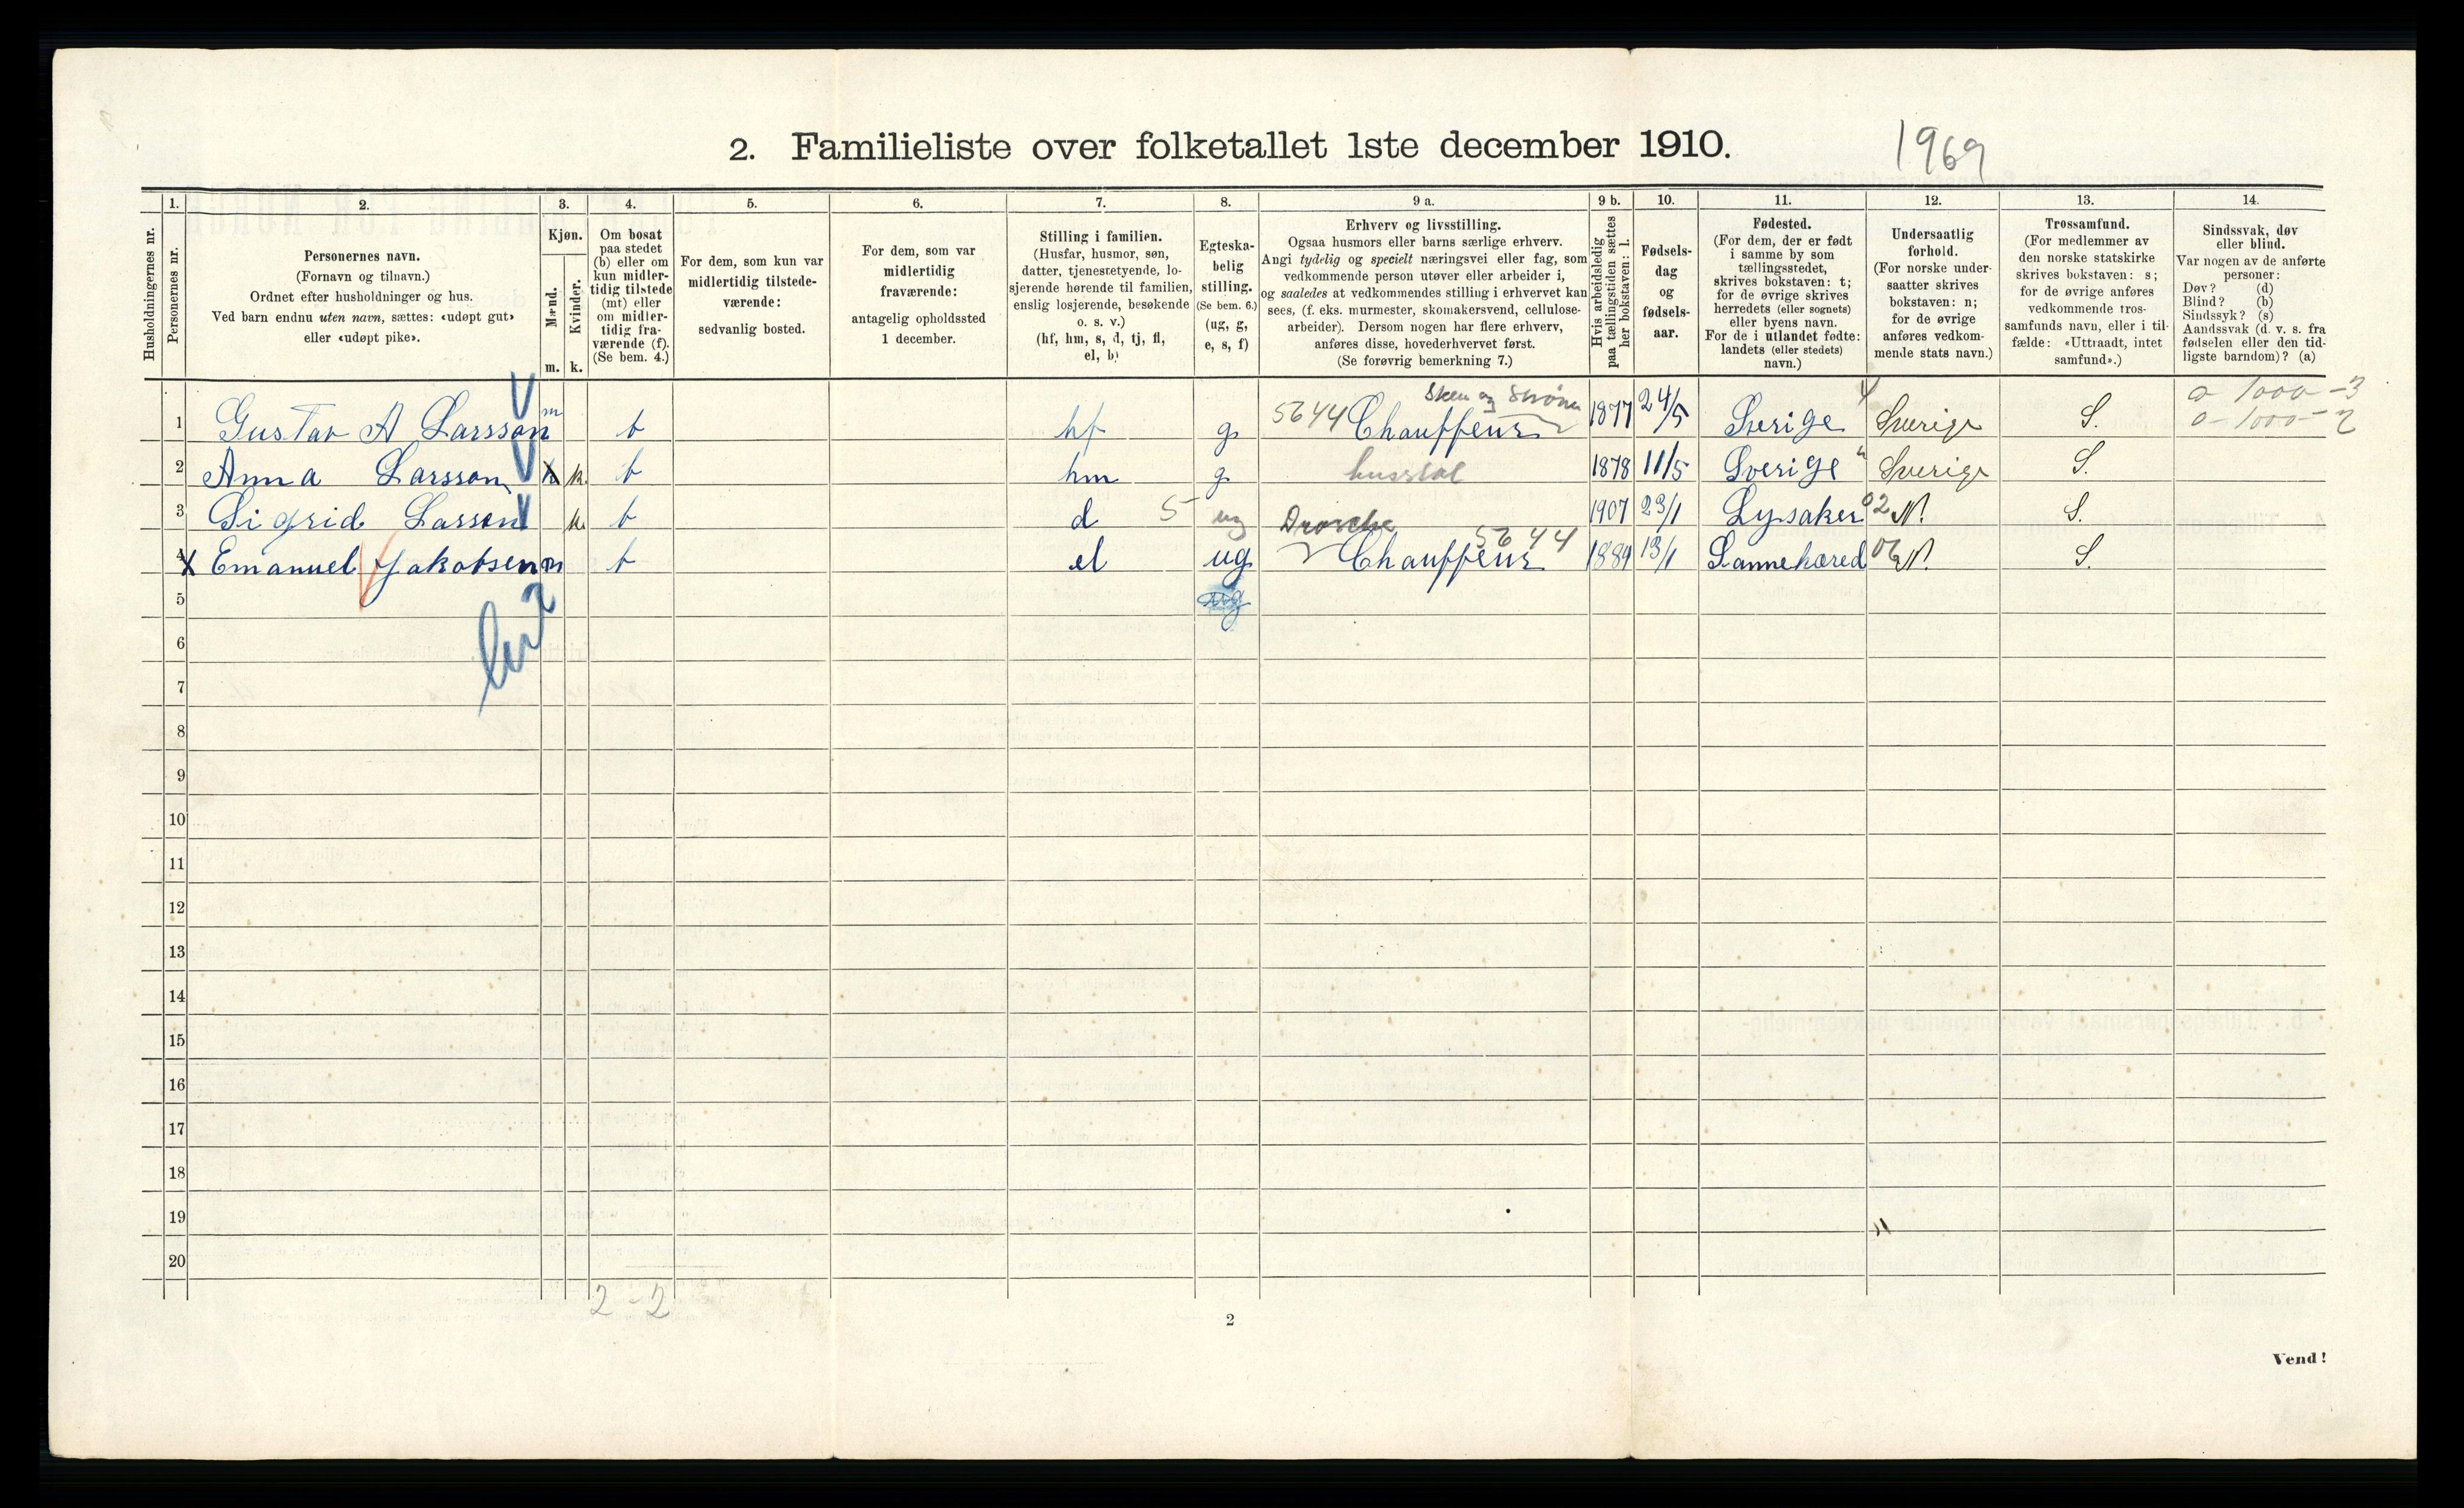 2. Familieliste over folketallet 1ste december 1910.
1969
Husholdningernes nr.
1.
Personernes nr.
2.
Personernes navn.
(Fornavn og tilnavn.)
Ordnet efter husholdninger og hus.
Ved barn endnu uten navn, sættes: «udøpt gut»
eller «udøpt pike».
3.
Kjøn.
Mænd.
Kvinder.
m. k.
4.
Om bosat
paa stedet
(b) eller om
kun midler-
tidig tilstede
(mt) eller
om midler-
tidig fra-
værende (f).
(Se bem. 4.)
5.
For dem, som kun var
midlertidig tilstede-
værende:
sedvanlig bosted.
6.
For dem, som var
midlertidig
fraværende:
antagelig opholdssted
1 december.
7.
Stilling i familien.
(Husfar, husmor, søn,
datter, tjenestetyende, lo-
sjerende hørende til familien,
enslig losjerende, besøkende
o. s. v.)
(hf, hm, s, d, tj, fl,
el, b)
8.
Egteska-
belig
stilling.
(Se bem. 6.)
(ug, g,
e, s, f)
9 a.
Erhverv og livsstilling.
Ogsaa husmors eller barns særlige erhverv.
Angi tydelig og specielt næringsvei eller fag, som
vedkommende person utøver eller arbeider i,
og saaledes at vedkommendes stilling i erhvervet kan
sees, (f. eks. murmester, skomakersvend, cellulose-
arbeider). Dersom nogen har flere erhverv,
anføres disse, hovederhvervet først.
(Se forøvrig bemerkning 7.)
9 b.
Hvis arbeidsledig
paa tællingstiden sættes
her bokstaven: l.
10.
Fødsels-
dag
og
fødsels-
aar.
11.
Fødested.
(For dem, der er født
i samme by som
tællingsstedet,
skrives bokstaven: t;
for de øvrige skrives
herredets (eller sognets)
eller byens navn.
For de i utlandet fødte:
landets (eller stedets)
navn.)
12.
Undersaatlig
forhold.
(For norske under-
saatter skrives
bokstaven: n;
for de øvrige
anføres vedkom-
mende stats navn.)
13.
Trossamfund.
(For medlemmer av
den norske statskirke
skrives bokstaven: s;
for de øvrige anføres
vedkommende tros-
samfunds navn, eller i til-
fælde: «Uttraadt, intet
samfund».)
14.
Sindssvak, døv
eller blind.
Var nogen av de anførte
personer:
Døv? (d)
Blind? (b)
Sindssyk? (s)
Aandssvak (d. v. s. fra
fødselen eller den tid-
ligste barndom)? (a)
1 Gustav A Larsson m b hf g 5644 Chauffeur 1877 24/5 Sverige Sverige S. 0-1000-3
0-1000-2
2 Anna Larsson k. b hm g husstel 1878 11/5 Sverige Sverige S.
3 Sigrid Larsson k. b d 5 ug 1907 23/1 Lysaker 02 N. S.
Drosche 5644
4 X Emanuel Jakobsen m b el ug Chauffeur 1889 13/1 Sannehæred 06 N. S.
5
6
7
8
9
10
11
12
13
14
15
16
17
18
19
20
2 - 2
2
Vend!